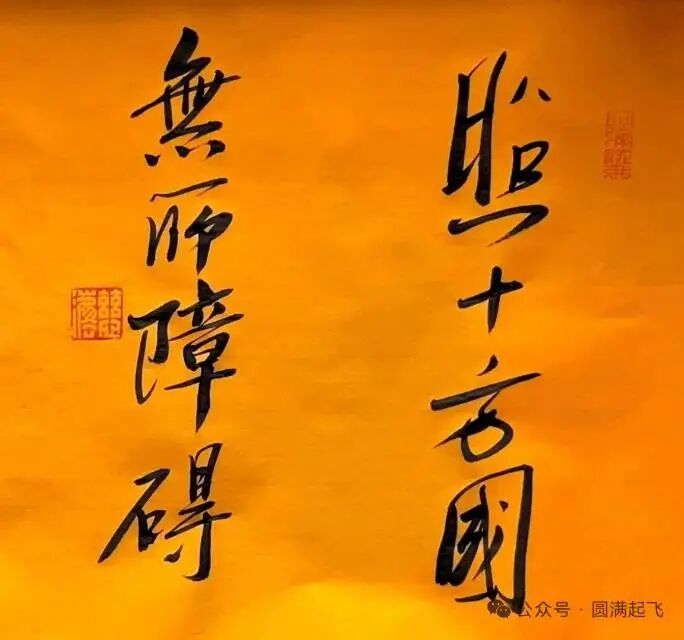 照十方國
無所障碍
公众号 · 圆满起飞